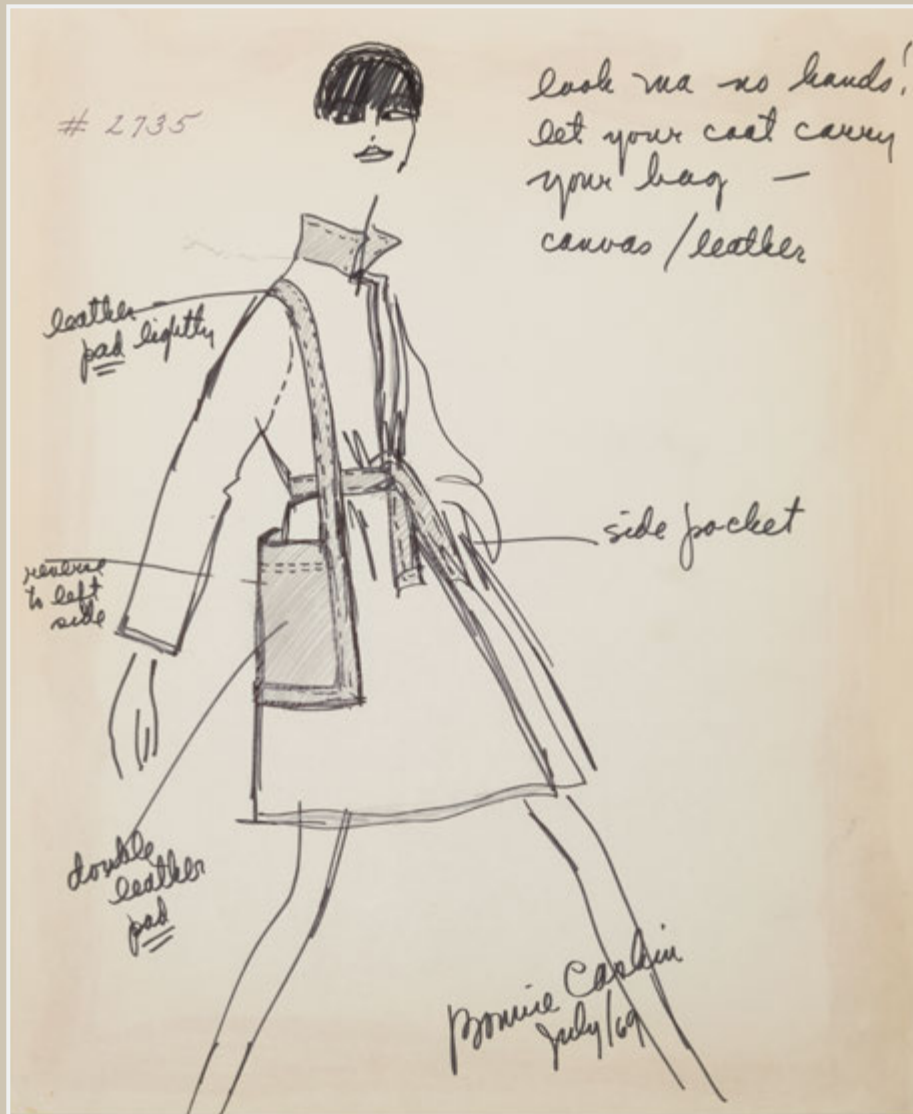 # 2735
look ma no hands!
let your coat carry
your bag —
canvas / leather
leather
pad lightly
side pocket
reverse
to left
side
double
leather
pad
Bonnie Cashin
July/69